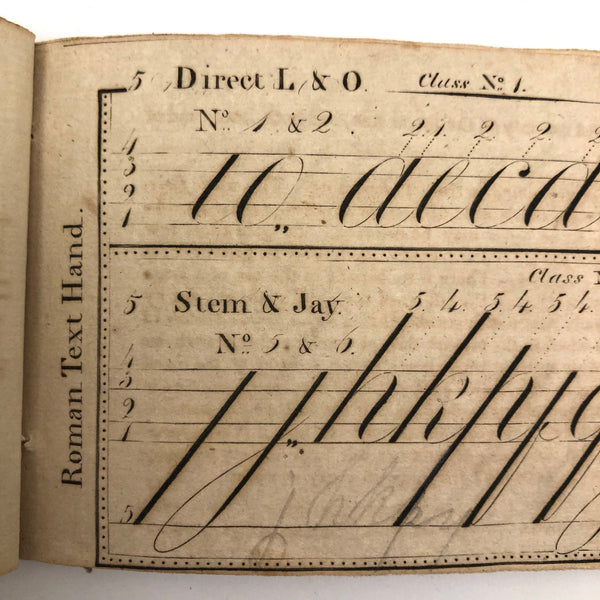 Roman Text Hand.
5 Direct L & O. Class No. 1.
No. 1 & 2. 21 2 2 2
4
3
2
1
lo,, aecd
Class
5 Stem & Jay. 5 4 5 4 5 4
No. 5 & 6.
4
3
2
1
5
j,, hkpy